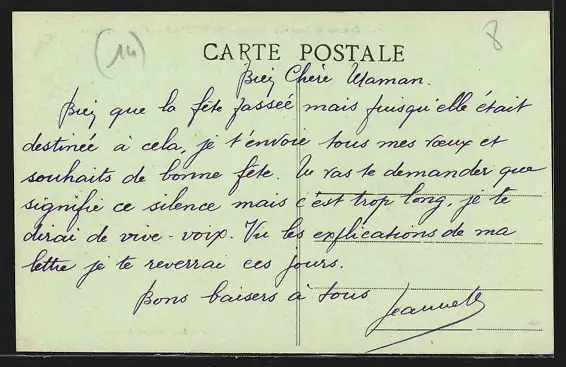 (14)
8
CARTE POSTALE
Bien Chère Maman.
Bien que la fête passée mais puisqu'elle était
destinée à cela, je t'envoie tous mes vœux et
souhaits de bonne fête. Tu vas te demander que
signifie ce silence mais c'est trop long, je te
dirai de vive-voix. Vu les explications de ma
lettre je te reverrai ces jours.
Bons baisers à tous
Jeannette